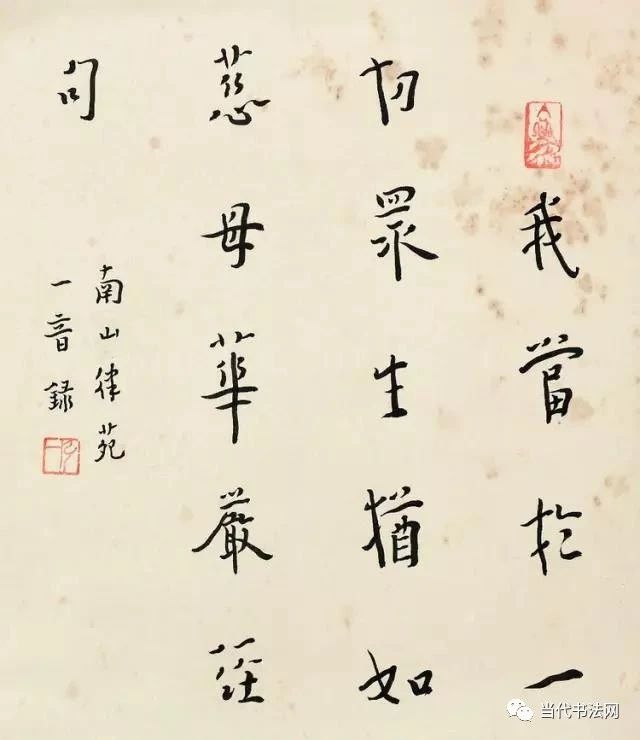 我當於一
切眾生猶如
慈母華嚴經
句
南山律苑
一音錄
当代书法网